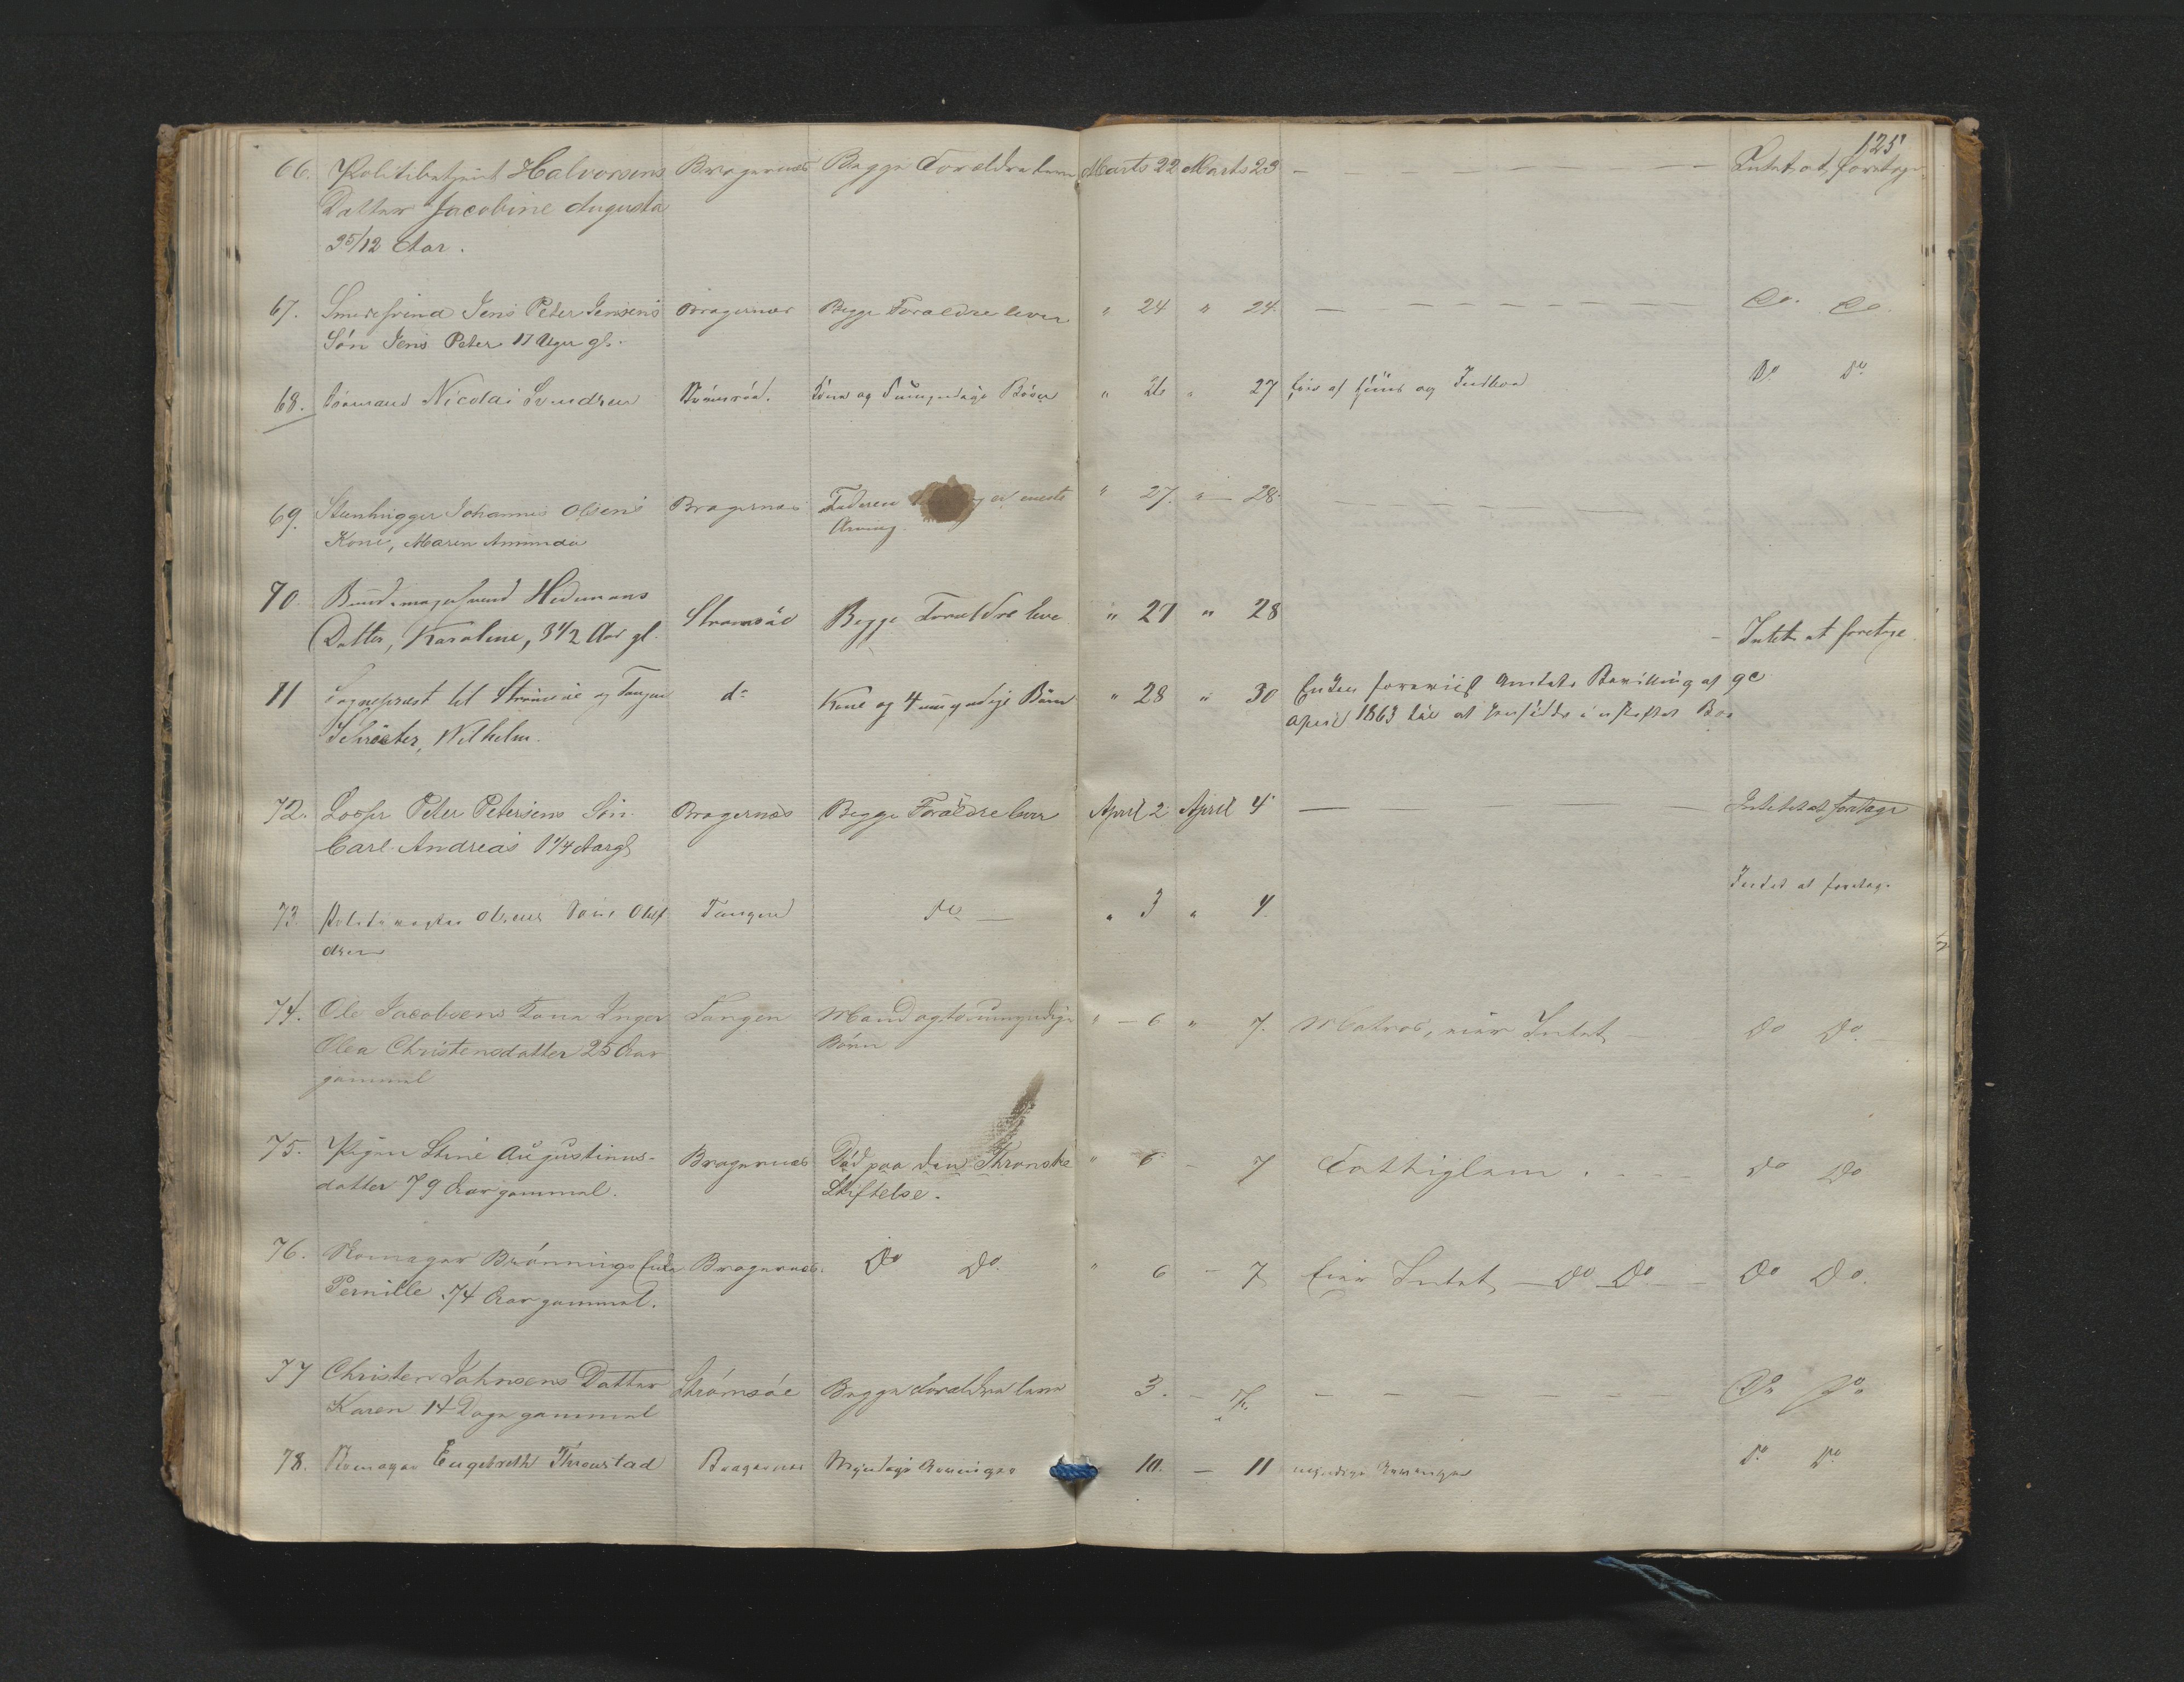 125
66. Politibetjent Halvorsens Bragernæs Begge Forældre leve Marts 22 Marts 23 — Intet at foretage
Datter Jacobine Augusta
3 5/12 Aar.
67. Smedesvend Jens Peter Jensens Bragernæs Begge Forældre lever " 24 " 24. — Do. Do.
Søn Jens Peter 17 Uger gl.
68. Sømand Nicolai Svendsen Strømsøe. Kone og Børn " 26 " 27 Eier af Huus og Indboe Do Do
69. Steenhugger Johannes Olsens Bragernæs Faderen er eneste " 27. " — 28. —
Kone, Maren Amunda Arving
70. Hedemans Strømsöe Begge Forældre leve " 27 " 28 - Intet at foretage
Datter, Karoline, 3 1/2 Aar gl.
71 Sogneprest til Strömsöe og Tangen do Kone og 4 umyndige Börn " 28 " 30 Enken foreviist Amtets Bevilling af 9e
Schröeter, Wilhelm. April 1863 til at hensidde i uskiftet Boe
72. Peter Petersens Søn Bragernæs Begge Forældre lever April 2 April 4 — Intet at foretage
Carl Andreas 1 1/4 Aar gl
73. Olsens Søn Oluf Tangen Do — " 3 " 4. Intet at foretage
74. Ole Jacobsens Kone Inger Tangen Mand og to umyndige " — 6 " 7. Matros, eier Intet — Do Do.
Olea Christensdatter 25 Aar Børn
gammel
75. Pigen Stine Augustinus- Bragernæs Død paa den Thronske " 6 - 7 Fattiglem. - - - Do Do
datter 79 Aar gammel. Stiftelse.
76. Skomager Brønnings Enke Bragernæs. Do Do. " 6 - 7 Eier Intet — Do Do — Do Do.
Pernille. 74 Aar gammel.
77 Christen Johnsens Datter Strømsøe Begge Forældre leve 3. - 7. — Do Do
Karen 14 Dage gammel
78. Skomager Engebreth Bragernæs Myndige Arvinger 10. — 11 myndige Arvinger Do Do